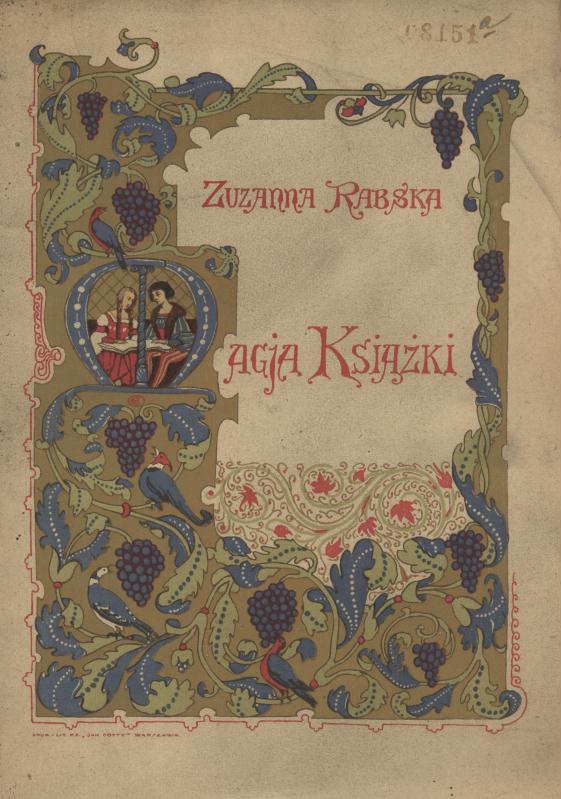 08151a
ZUZANNA RABSKA
MAGJA KSIĄŻKI
DRUK-LIT. P.F. „JAN COTTY" WARSZAWA